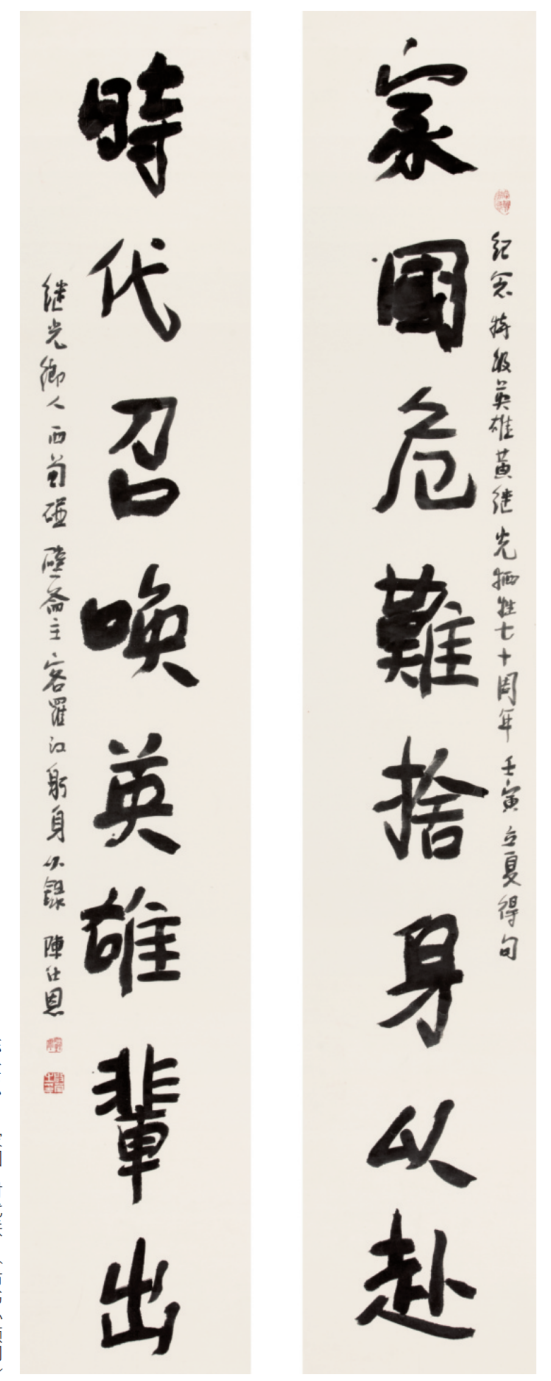 家國危難捨身以赴
紀念特級英雄黄继光牺牲七十周年 壬寅立夏得句
時代召喚英雄輩出
继光鄉人西蜀碰壁斋主客羅江躬身以錄 陳仕恩